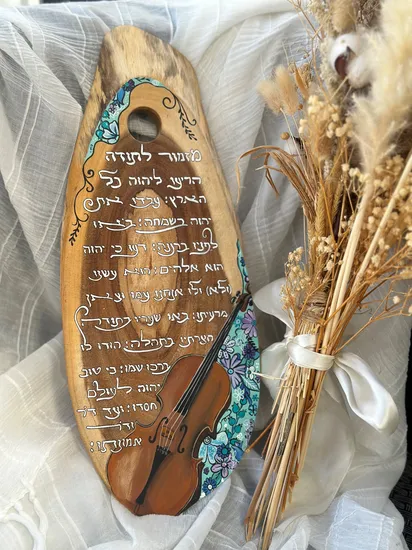 מזמור לתודה
הריעו ליהוה כל
הארץ: עבדו את
יהוה בשמחה: באו
לפניו ברננה: דעו כי יהוה
הוא אלהים: הוא עשנו
(ולא) ולו אנחנו עמו וצאן
מרעיתו: באו שעריו בתודה
חצרתיו בתהלה: הודו לו
ברכו שמו: כי טוב
יהוה לעולם
חסדו: ועד דר
ודר
אמונתו: